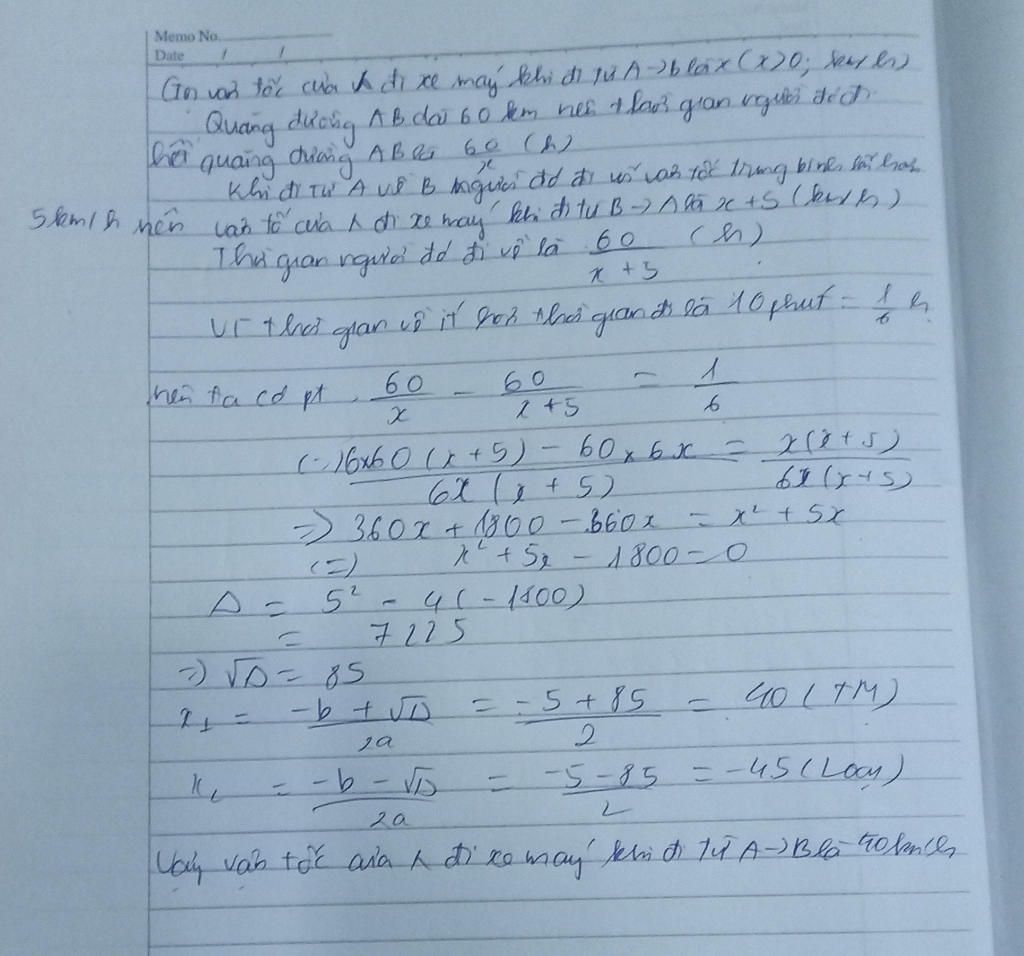 Memo No.
Date / /
Gọi vận tốc của λ đi xe máy khi đi từ A→b là x (x>0; km/h)
Quãng đường AB dài 60 km nên thời gian người đó đi
hết quãng đường AB là 60/x (h)
Khi đi từ A về B người đó đi với vận tốc trung bình lớn hơn
5km/h nên vận tố của λ đi xe máy khi đi từ B→A là x+5 (km/h)
Thời gian người đó đi về là 60/(x+5) (h)
Vì thời gian về ít hơn thời gian đi là 10 phút = 1/6 h
nên ta có pt. 60/x - 60/(x+5) = 1/6
(=) (6x60(x+5) - 60 x 6x)/(6x(x+5)) = x(x+5)/(6x(x+5))
=> 360x + 1800 - 360x = x² + 5x
(=) x² + 5x - 1800 = 0
Δ = 5² - 4(-1800)
= 7225
=> √Δ = 85
x₁ = (-b + √Δ)/2a = (-5 + 85)/2 = 40 (TM)
x₂ = (-b - √Δ)/2a = (-5 - 85)/2 = -45 (Loại)
Vậy vận tốc của λ đi xe máy khi đi từ A→B là 40km/h